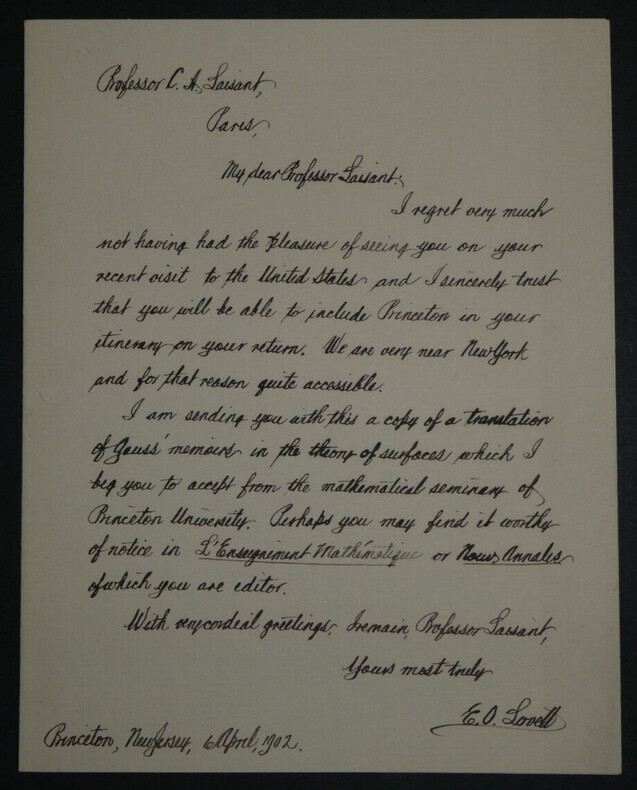 Professor C. A. Laisant,
Paris,
My dear Professor Laisant:
I regret very much
not having had the pleasure of seeing you on your
recent visit to the United States and I sincerely trust
that you will be able to include Princeton in your
itinerary on your return. We are very near New York
and for that reason quite accessible.
I am sending you with this a copy of a translation
of Gauss' memoirs in the theory of surfaces which I
beg you to accept from the mathematical seminary of
Princeton University. Perhaps you may find it worthy
of notice in L'Enseignement Mathématique or Nouv. Annales
of which you are editor.
With very cordial greetings, I remain, Professor Laisant,
Yours most truly
E. O. Lovett
Princeton, New Jersey, 6 April, 1902.